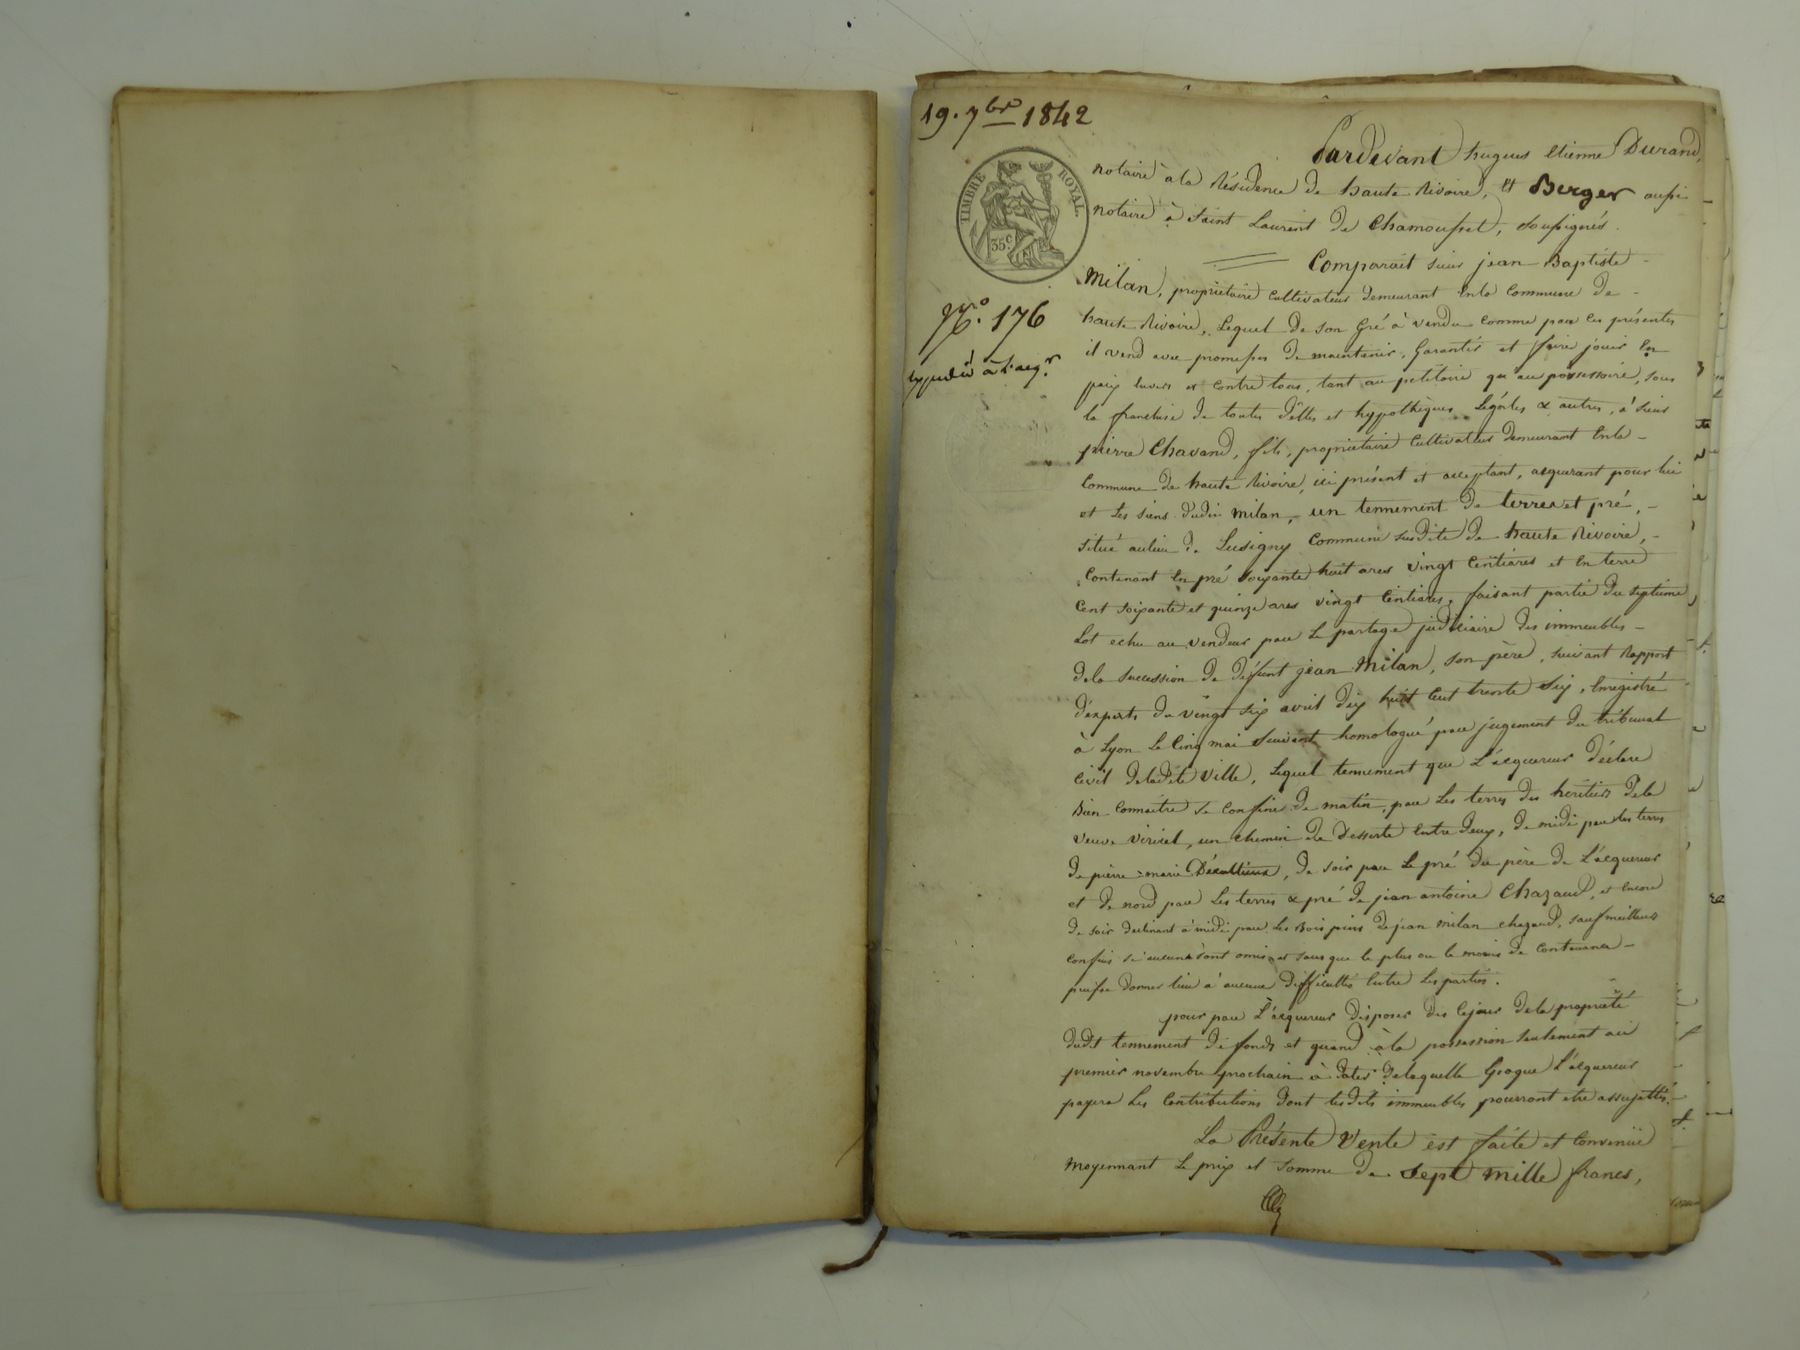 19. 7bre 1842
TIMBRE ROYAL.
35 c.
No. 176
expédié à l'acqr.
Pardevant hugues Etienne Durand,
notaire à la Résidence de haute Rivoire, et Berger aussi
notaire à Saint Laurent de Chamousset, soussignés.
Comparait sieur jean Baptiste
Milan, propriétaire cultivateur demeurant en la Commune de
haute Rivoire, Lequel de son Gré à vendu comme par les présentes
il vend avec promesse de maintenir, Garantir et faire jouir en
paix envers et contre tous, tant au petitoire qu'au possessoire, sous
la franchise de toutes dettes et hypothèques Légales & autres, à sieur
pierre Chavand, fils, propriétaire Cultivateur demeurant en la
Commune de haute Rivoire, ici présent et acceptant, acquerant pour lui
et les siens dudit Milan, un tennement de terres et pré,
situé au lieu de Lusigny Commune susdite de haute Rivoire,
Contenant en pré soixante huit ares vingt Centiares et en terre
Cent soixante et quinze ares vingt Centiares, faisant partie du septième
Lot echu au vendeur par le partage judiciaire des immeubles
de la succession de défunt jean Milan, son père, suivant Rapport
d'experts du vingt six avril dix huit Cent trente six, Enregistré
à Lyon Le Cinq mai suivant homologué par jugement du tribunal
Civil de ladite ville, Lequel tennement que L'acquereur déclare
Bien Connaitre se confine de matin, par Les terres des heritiers de la
veuve viricel, un chemin de Desserte Entre deux, de midi par les terres
de pierre marie, de soir par Le pré du père de L'acquereur
et de nord par Les terres & pré de jean antoine Chazaud, et Encore
de soir declinant à midi par Les Bois pins de jean Milan chazaud, sauf meilleurs
confins si aucuns sont omis et sans que le plus ou le moins de Contenance
puisse donner lieu à aucune difficultés Entre Les parties.
pour par L'acquereur disposer dès ce jour de la propriété
dudit tennement de fonds et quand à la possession seulement au
premier novembre prochain à dater de laquelle Epoque L'acquereur
payera Les Contributions dont lesdits immeubles pourront etre assujettis.
La Présente Vente est faite et Convenüe
moyennant Le prix et somme de Sept mille francs,